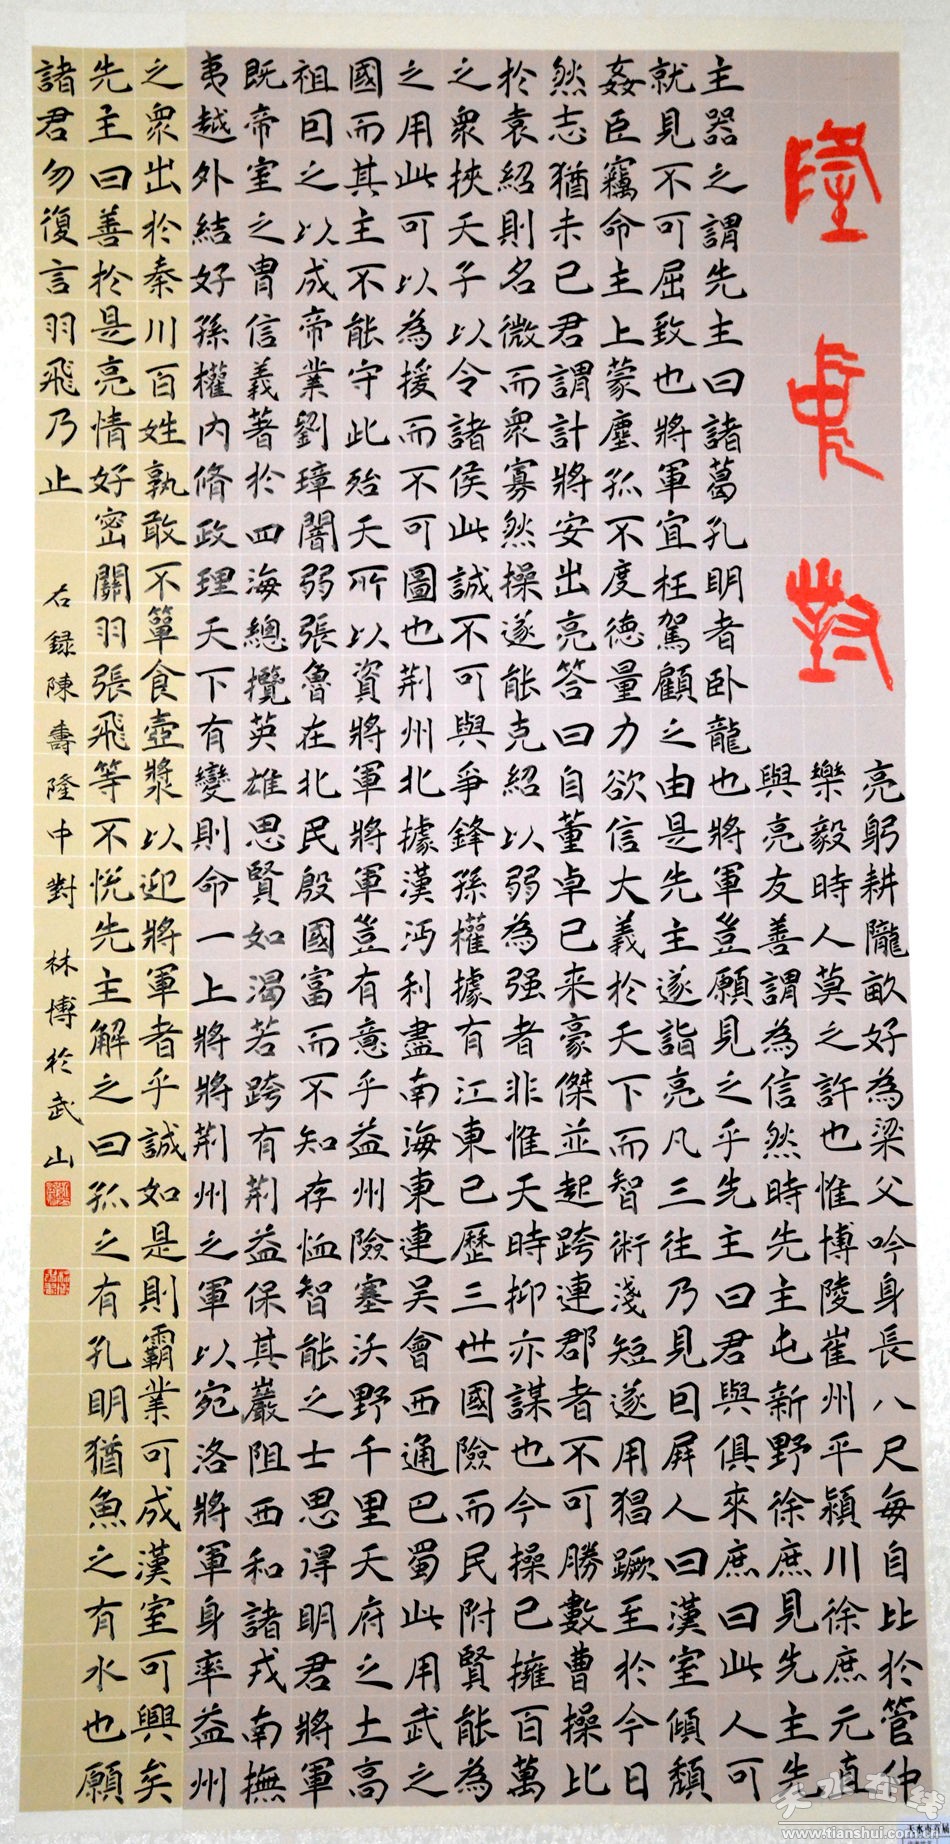 隆中對
亮躬耕隴畝好為梁父吟身長八尺每自比於管仲
樂毅時人莫之許也惟博陵崔州平潁川徐庶元直
與亮友善謂為信然時先主屯新野徐庶見先主先
主器之謂先主曰諸葛孔明者卧龍也將軍豈願見之乎先主曰君與俱來庶曰此人可
就見不可屈致也將軍宜枉駕顧之由是先主遂詣亮凡三往乃見因屏人曰漢室傾頹
姦臣竊命主上蒙塵孤不度德量力欲信大義於天下而智術淺短遂用猖蹶至於今日
然志猶未已君謂計將安出亮答曰自董卓已来豪傑並起跨連郡者不可勝數曹操比
於袁紹則名微而衆寡然操遂能克紹以弱為强者非惟天時抑亦謀也今操已擁百萬
之衆挾天子以令諸侯此誠不可與爭鋒孫權據有江東已歷三世國險而民附賢能為
之用此可以為援而不可圖也荆州北據漢沔利盡南海東連吴會西通巴蜀此用武之
國而其主不能守此殆天所以資將軍將軍豈有意乎益州險塞沃野千里天府之土高
祖因之以成帝業劉璋闇弱張魯在北民殷國富而不知存恤智能之士思得明君將軍
既帝室之胄信義著於四海總攬英雄思賢如渴若跨有荆益保其巖阻西和諸戎南撫
夷越外結好孫權内脩政理天下有變則命一上將將荆州之軍以宛洛將軍身率益州
之衆出於秦川百姓孰敢不簞食壺漿以迎將軍者乎誠如是則霸業可成漢室可興矣
先主曰善於是亮情好密關羽張飛等不悅先主解之曰孤之有孔明猶魚之有水也願
諸君勿復言羽飛乃止
右録陳壽隆中對 林博於武山
天水在线
www.tianshui.com.cn